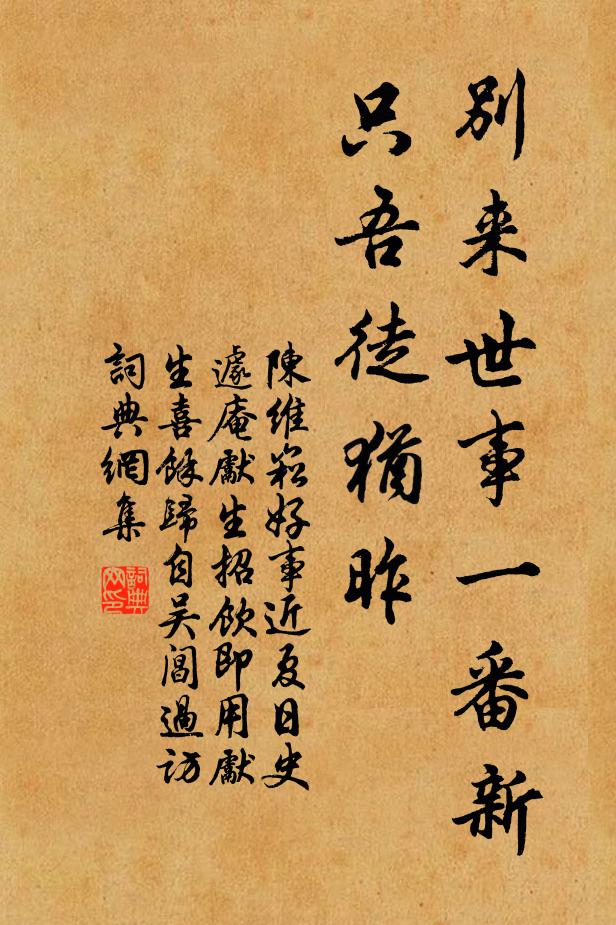 別来世事一番新
只吾徒猶昨
陳維崧好事近夏日史
遽庵獻生招飲即用獻
生喜餘歸自吴閶過訪
詞典網集
詞典
网印